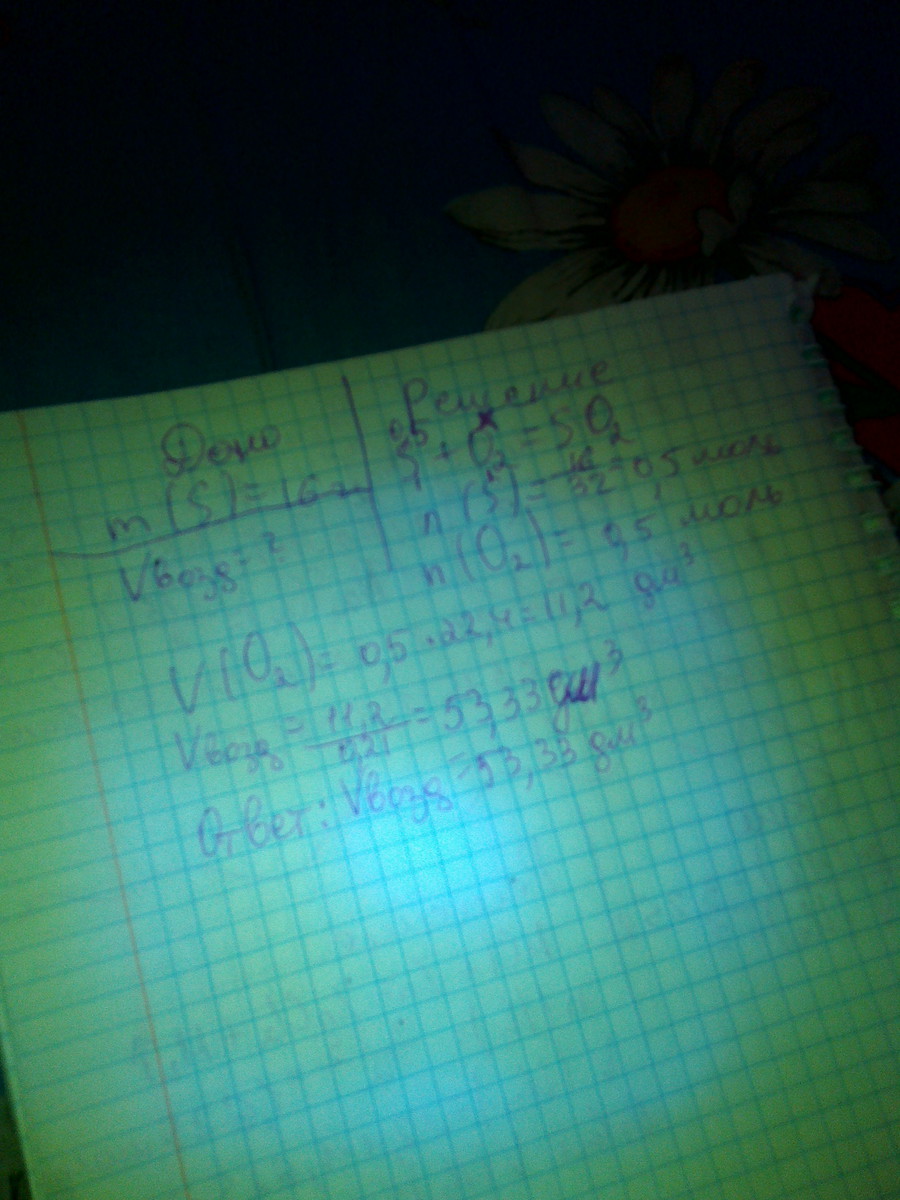 Дано
m (S) = 16 г
Vвозд = ?
Решение
0,5 x
S + O2 = SO2
1
n (S) = 16/32 = 0,5 моль
n (O2) = 0,5 моль
V(O2) = 0,5 · 22,4 = 11,2 дм³
Vвозд = 11,2/0,21 = 53,33 дм³
Ответ: Vвозд = 53,33 дм³